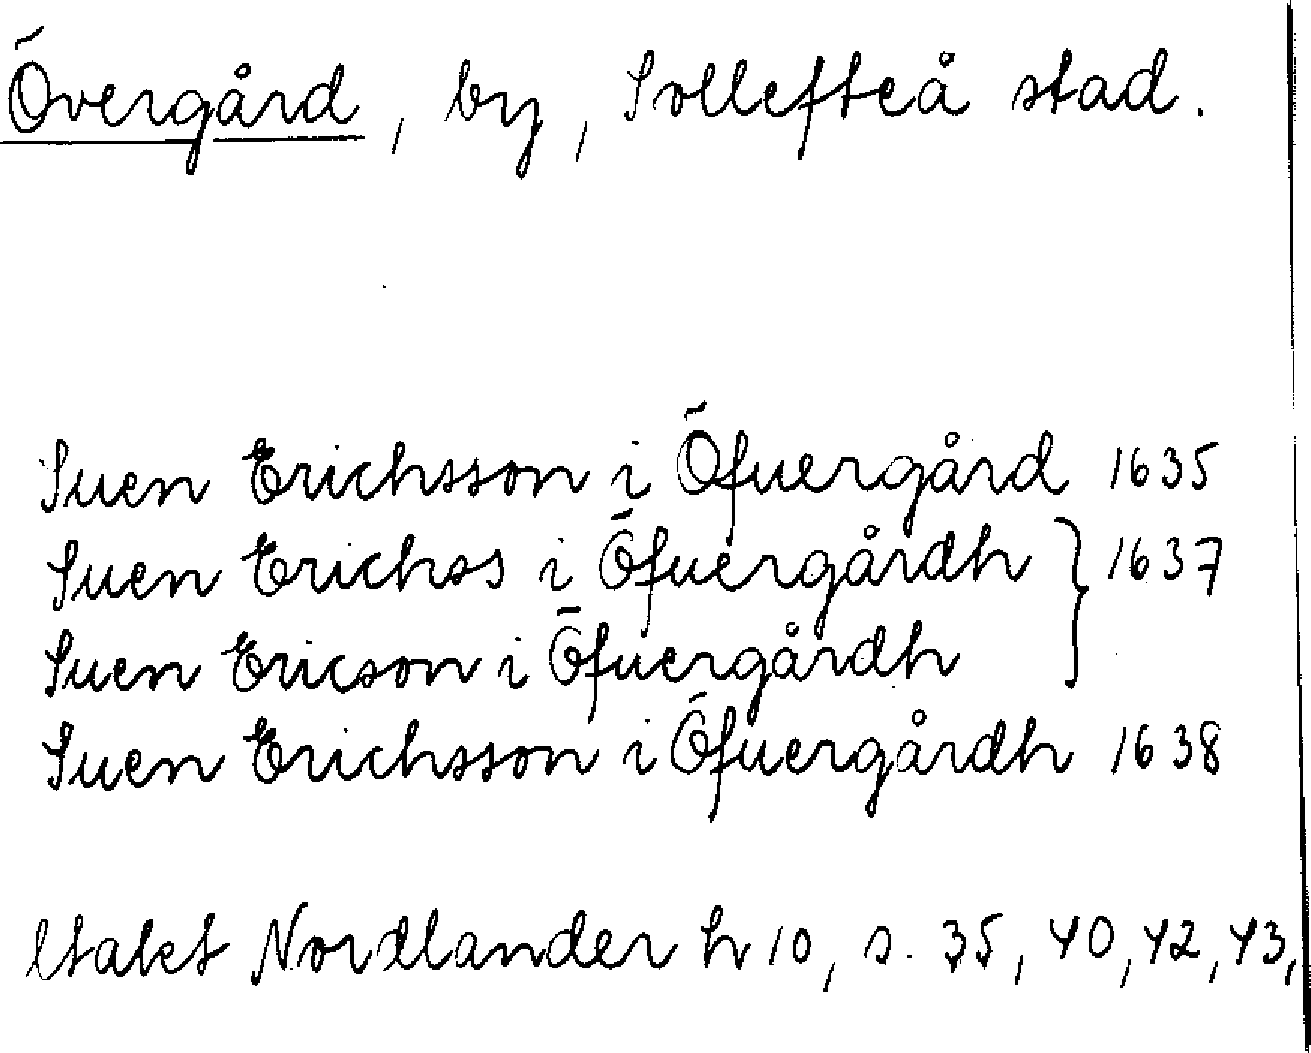 Övergård, by, Sollefteå stad.
Suen Erichsson i Öfuergård 1635
Suen Erichss i Öfuergårdh } 1637
Suen Ericson i Öfuergårdh
Suen Erichsson i Öfuergårdh 1638
Nordlander h 10, s. 35, 40, 42, 43,